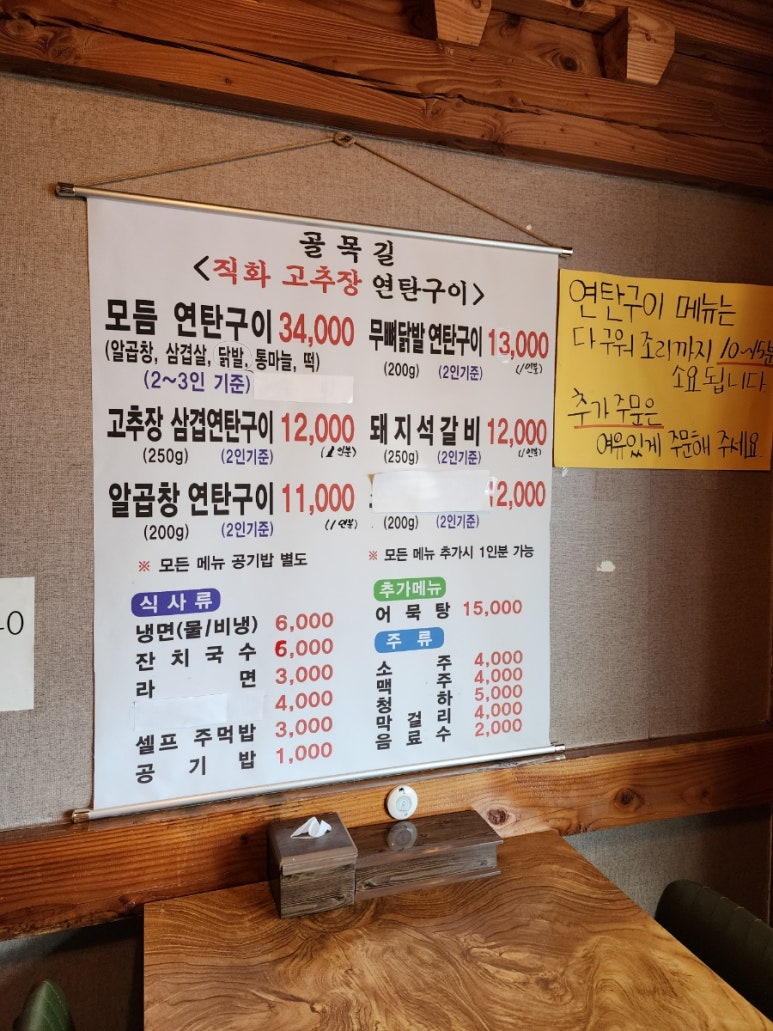 골목길
<직화 고추장 연탄구이>
모듬 연탄구이 34,000
(알곱창, 삼겹살, 닭발, 통마늘, 떡)
(2~3인 기준)
고추장 삼겹연탄구이 12,000
(250g) (2인기준) (1인분)
알곱창 연탄구이 11,000
(200g) (2인기준) (1인분)
※ 모든 메뉴 공기밥 별도
무뼈닭발 연탄구이 13,000
(200g) (2인기준) (1인분)
돼지석갈비 12,000
(250g) (2인기준) (1인분)
12,000
(200g) (2인기준)
※ 모든 메뉴 추가시 1인분 가능
식사류
냉면(물/비냉) 6,000
잔치국수 6,000
라면 3,000
4,000
셀프 주먹밥 3,000
공기밥 1,000
추가메뉴
어묵탕 15,000
주류
소주 4,000
맥주 4,000
청하 5,000
막걸리 4,000
음료수 2,000
연탄구이 메뉴는
다 구워 조리까지 10~15분
소요됩니다.
추가 주문은
여유있게 주문해 주세요.